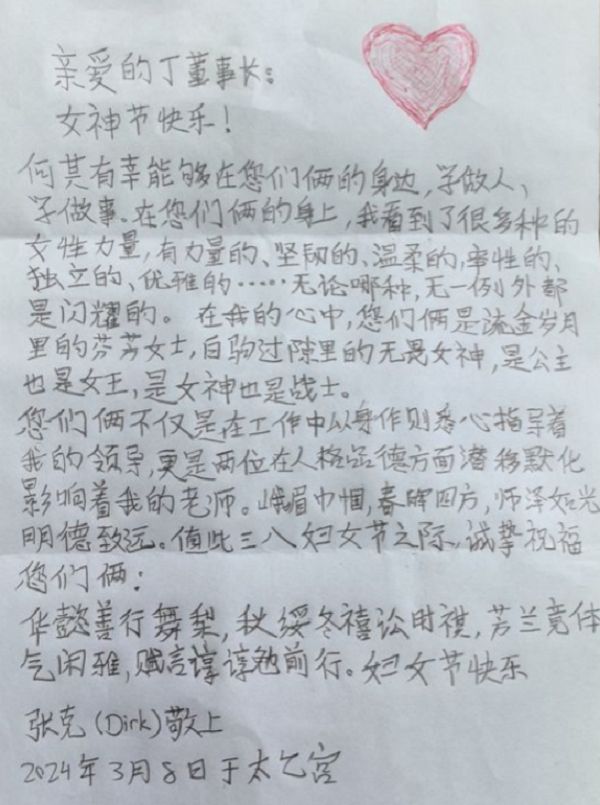 亲爱的丁董事长：
女神节快乐！
何其有幸能够在您们俩的身边，学做人、
学做事。在您们俩的身上，我看到了很多种的
女性力量，有力量的、坚韧的、温柔的，率性的、
独立的、优雅的……无论哪种，无一例外都
是闪耀的。在我的心中，您们俩是流金岁月
里的芬芳女士，白驹过隙里的无畏女神，是公主
也是女王，是女神也是战士。
您们俩不仅是在工作中以身作则悉心指导着
我的领导，更是两位在人格品德方面潜移默化
影响着我的老师。峨眉巾帼，春晖四方，师泽如光
明德致远。值此三八妇女节之际，诚挚祝福
您们俩：
华懿善行舞梨，秋绥冬禧讼时祺，芳兰竟体
气闲雅，赋言谆谆勉前行。妇女节快乐
张克(Dirk)敬上
2024年3月8日于太乙宫